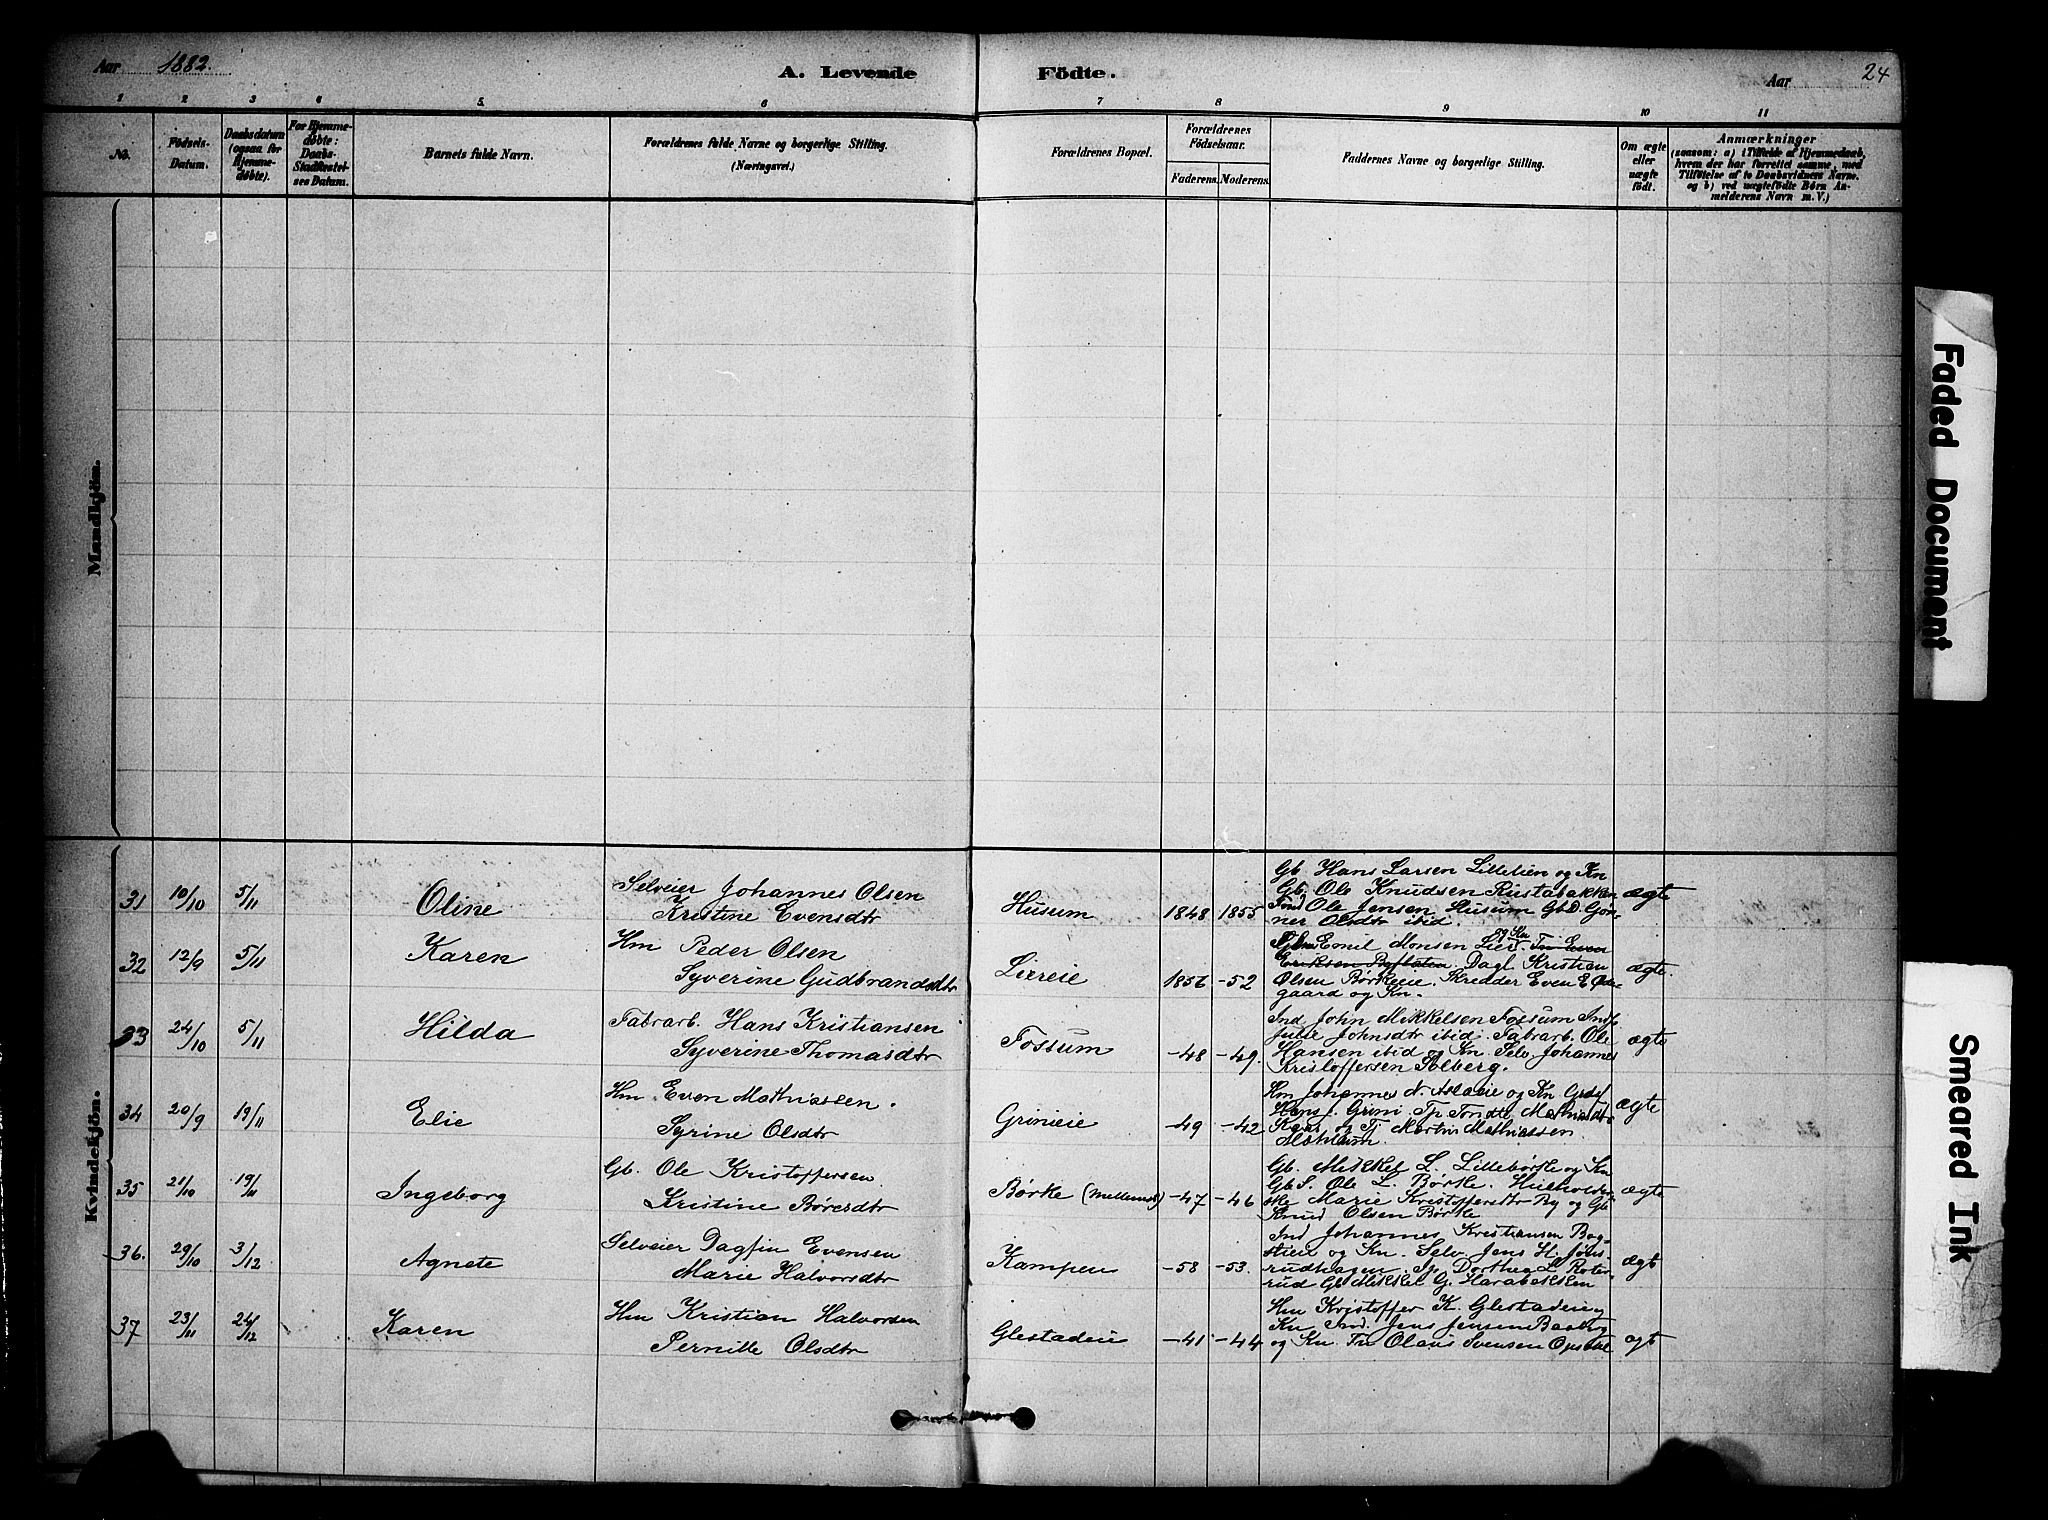 Aar 1882.
A. Levende Födte.
Aar
24
1 2 3 4 5. 6 7 8 9 10 11
No.
Fødsels-Datum.
Daabsdatum (ogsaa for Hjemmedøbte).
For Hjemmedøbte: Daabs-Stadfæstelses Datum.
Barnets fulde Navn.
Forældrenes fulde Navne og borgerlige Stilling.
(Næringsvei.)
Forældrenes Bopæl.
Forældrenes Födselsaar.
Faderens. Moderens.
Faddernes Navne og borgerlige Stilling.
Om ægte eller uægte født.
Anmærkninger
(saasom: a) i Tilfælde af Hjemmedaab,
hvem der har forrettet samme, med
Tilföielse af to Daabsvidners Navne.
og b) ved uægtefödte Börn An-
melderens Navn m. V.)
Mandkjön.
Kvindekjön.
31 10/10 5/11 Oline
Selveier Johannes Olsen
Kristine Evensdtr
Husum 1848 1855
Gb. Hans Larsen Lillelien og Kn
Gb. Ole Knudsen Rustabakken
Ole Jensen Husum Gb D. Gøn-
ner Olsdtr ibid.
ægte
32 12/9 5/11 Karen
Hm Peder Olsen
Syverine Gudbrandsdtr
Liereie 1856 -52
Emil Monsen Lier og Kn Even
Eriksen Dagl Kristian
Olsen Børkeeie. Skredder Even E. Øde-
gaard og Kn.
ægte.
33 24/10 5/11 Hilda
Fabrarb. Hans Kristiansen
Syverine Thomasdtr
Fossum -48 -49.
Ind. John Mikkelsen Fossum
Julie Johnsdtr ibid. Fabrarb. Ole
Hansen ibid og Kn. Selv. Johannes
Kristoffersen Solberg.
ægte
34 20/9 19/11 Elie
Hm. Even Mathiassen.
Syrine Olsdtr
Grinieie -49 -42
Hm Johannes og Kn
Hans J. Grini. Mathiasdtr
og Martin Mathiassen
ægte
35 21/10 19/11 Ingeborg
Gb. Ole Kristoffersen
Kristine Børesdtr
Børke (Mellems) -47 -46
Gb. Mikkel L. Lillebørke og Kn
Gb S. Ole L. Børke. Husholder-
ske Marie Kristoffersdtr By og Gb
Knud Olsen Børke
ægte
36. 29/10 3/12 Agnete
Selveier Dagfin Evensen
Marie Halvorsdtr
Kampen -58 -53.
Ind Johannes Kristiansen Bag-
stien og Kn. Selv Jens H. Jøns-
rudhagen. Dorthea L. Roter-
rud Gb Mikkel G. Harabakken
ægt
37 23/11 24/12 Karen
Hm Kristian Halvorsen
Pernille Olsdtr
Glestadeie -41 -44
Hm Kristoffer K. Glestadeie og
Kn Ind. Jens Jensen
og Kn. Olaus Svensen Opsahl
ægt
Faded Document
Smeared Ink